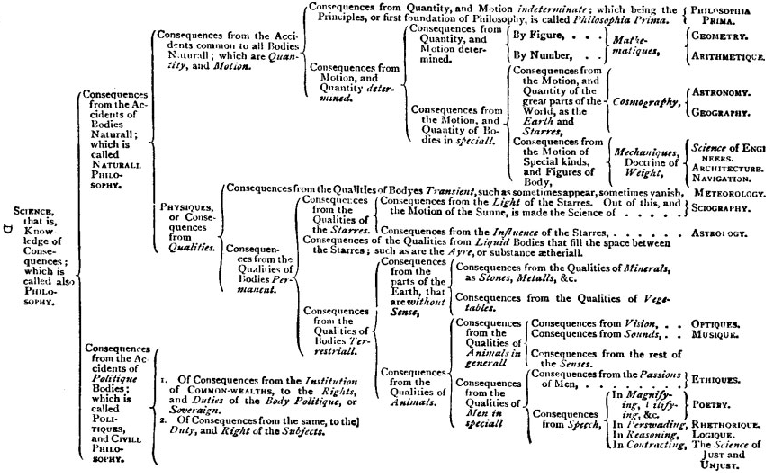 SCIENCE,
that is,
Know-
ledge of
Conse-
quences;
which is
called also
PHILO-
SOPHY.
Consequences
from the Ac-
cidents of
Bodies
Naturall;
which is
called
NATURALL
PHILO-
SOPHY.
Consequences from the Acci-
dents common to all Bodies
Naturall; which are Quan-
tity, and Motion.
Consequences from Quantity, and Motion indeterminate; which being the
Principles, or first foundation of Philosophy, is called Philosophia Prima.
PHILOSOPHIA
PRIMA.
Consequences from
Motion, and
Quantity deter-
mined.
Consequences from
Quantity, and
Motion deter-
mined.
By Figure, . . .
By Number, . .
Mathe-
matiques,
GEOMETRY.
ARITHMETIQUE.
Consequences from
the Motion, and
Quantity of Bo-
dies in speciall.
Consequences from
the Motion, and
Quantity of the
great parts of the
World, as the
Earth and
Starres,
Cosmography,
ASTRONOMY.
GEOGRAPHY.
Consequences from
the Motion of
Special kinds,
and Figures of
Body,
Mechaniques,
Doctrine of
Weight,
Science of ENGI
NEERS.
ARCHITECTURE.
NAVIGATION.
PHYSIQUES,
or Conse-
quences
from
Qualities.
Consequences from the Qualities of Bodyes Transient, such as sometimes appear, sometimes vanish.
METEOROLOGY.
Consequen-
ces from the
Qualities of
Bodies Per-
manent.
Consequences
from the
Qualities of
the Starres.
Consequences from the Light of the Starres. Out of this, and
the Motion of the Sunne, is made the Science of . . . . .
SCIOGRAPHY.
Consequences from the Influence of the Starres, . . . . . .
ASTROLOGY.
Consequences of the Qualities from Liquid Bodies that fill the space between
the Starres; such as are the Ayre, or substance ætheriall.
Consequences
from the
Qualities of
Bodies Ter-
restriall.
Consequences
from the
parts of the
Earth, that
are without
Sense,
Consequences from the Qualities of Minerals,
as Stones, Metalls, &c.
Consequences from the Qualities of Vege-
tables.
Consequences
from the
Qualities of
Animals.
Consequences
from the
Qualities of
Animals in
generall
Consequences from Vision, . .
OPTIQUES.
Consequences from Sounds, . .
MUSIQUE.
Consequences from the rest of
the Senses.
Consequences
from the
Qualities of
Men in
speciall
Consequences from the Passions
of Men, . . . . . . .
ETHIQUES.
Consequences
from Speech,
In Magnify-
ing, Vilify-
ing, &c.
POETRY.
In Perswading,
RHETHORIQUE.
In Reasoning,
LOGIQUE.
In Contracting,
The Science of
JUST and
UNJUST.
Consequences
from the Ac
cidents of
Politique
Bodies;
which is
called
POLI-
TIQUES,
and CIVILL
PHILO-
SOPHY.
1. Of Consequences from the Institution
of COMMON-WEALTHS, to the Rights,
and Duties of the Body Politique, or
Soveraign.
2. Of Consequences from the same, to the
Duty, and Right of the Subjects.